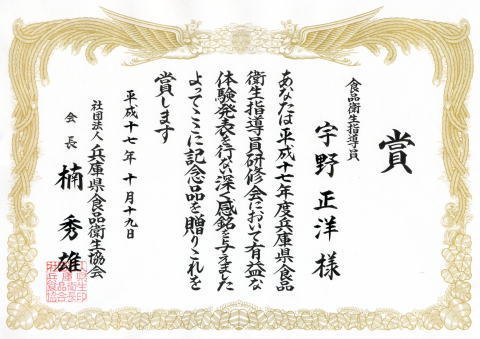 賞
食品衛生指導員
宇野正洋様
あなたは平成十七年度兵庫県食品
衛生指導員研修会において有益な
体験発表を行ない深く感銘を与えました
よってここに記念品を贈りこれを
賞します
平成十七年十月十九日
社団法人兵庫県食品衛生協会
会長 楠秀雄